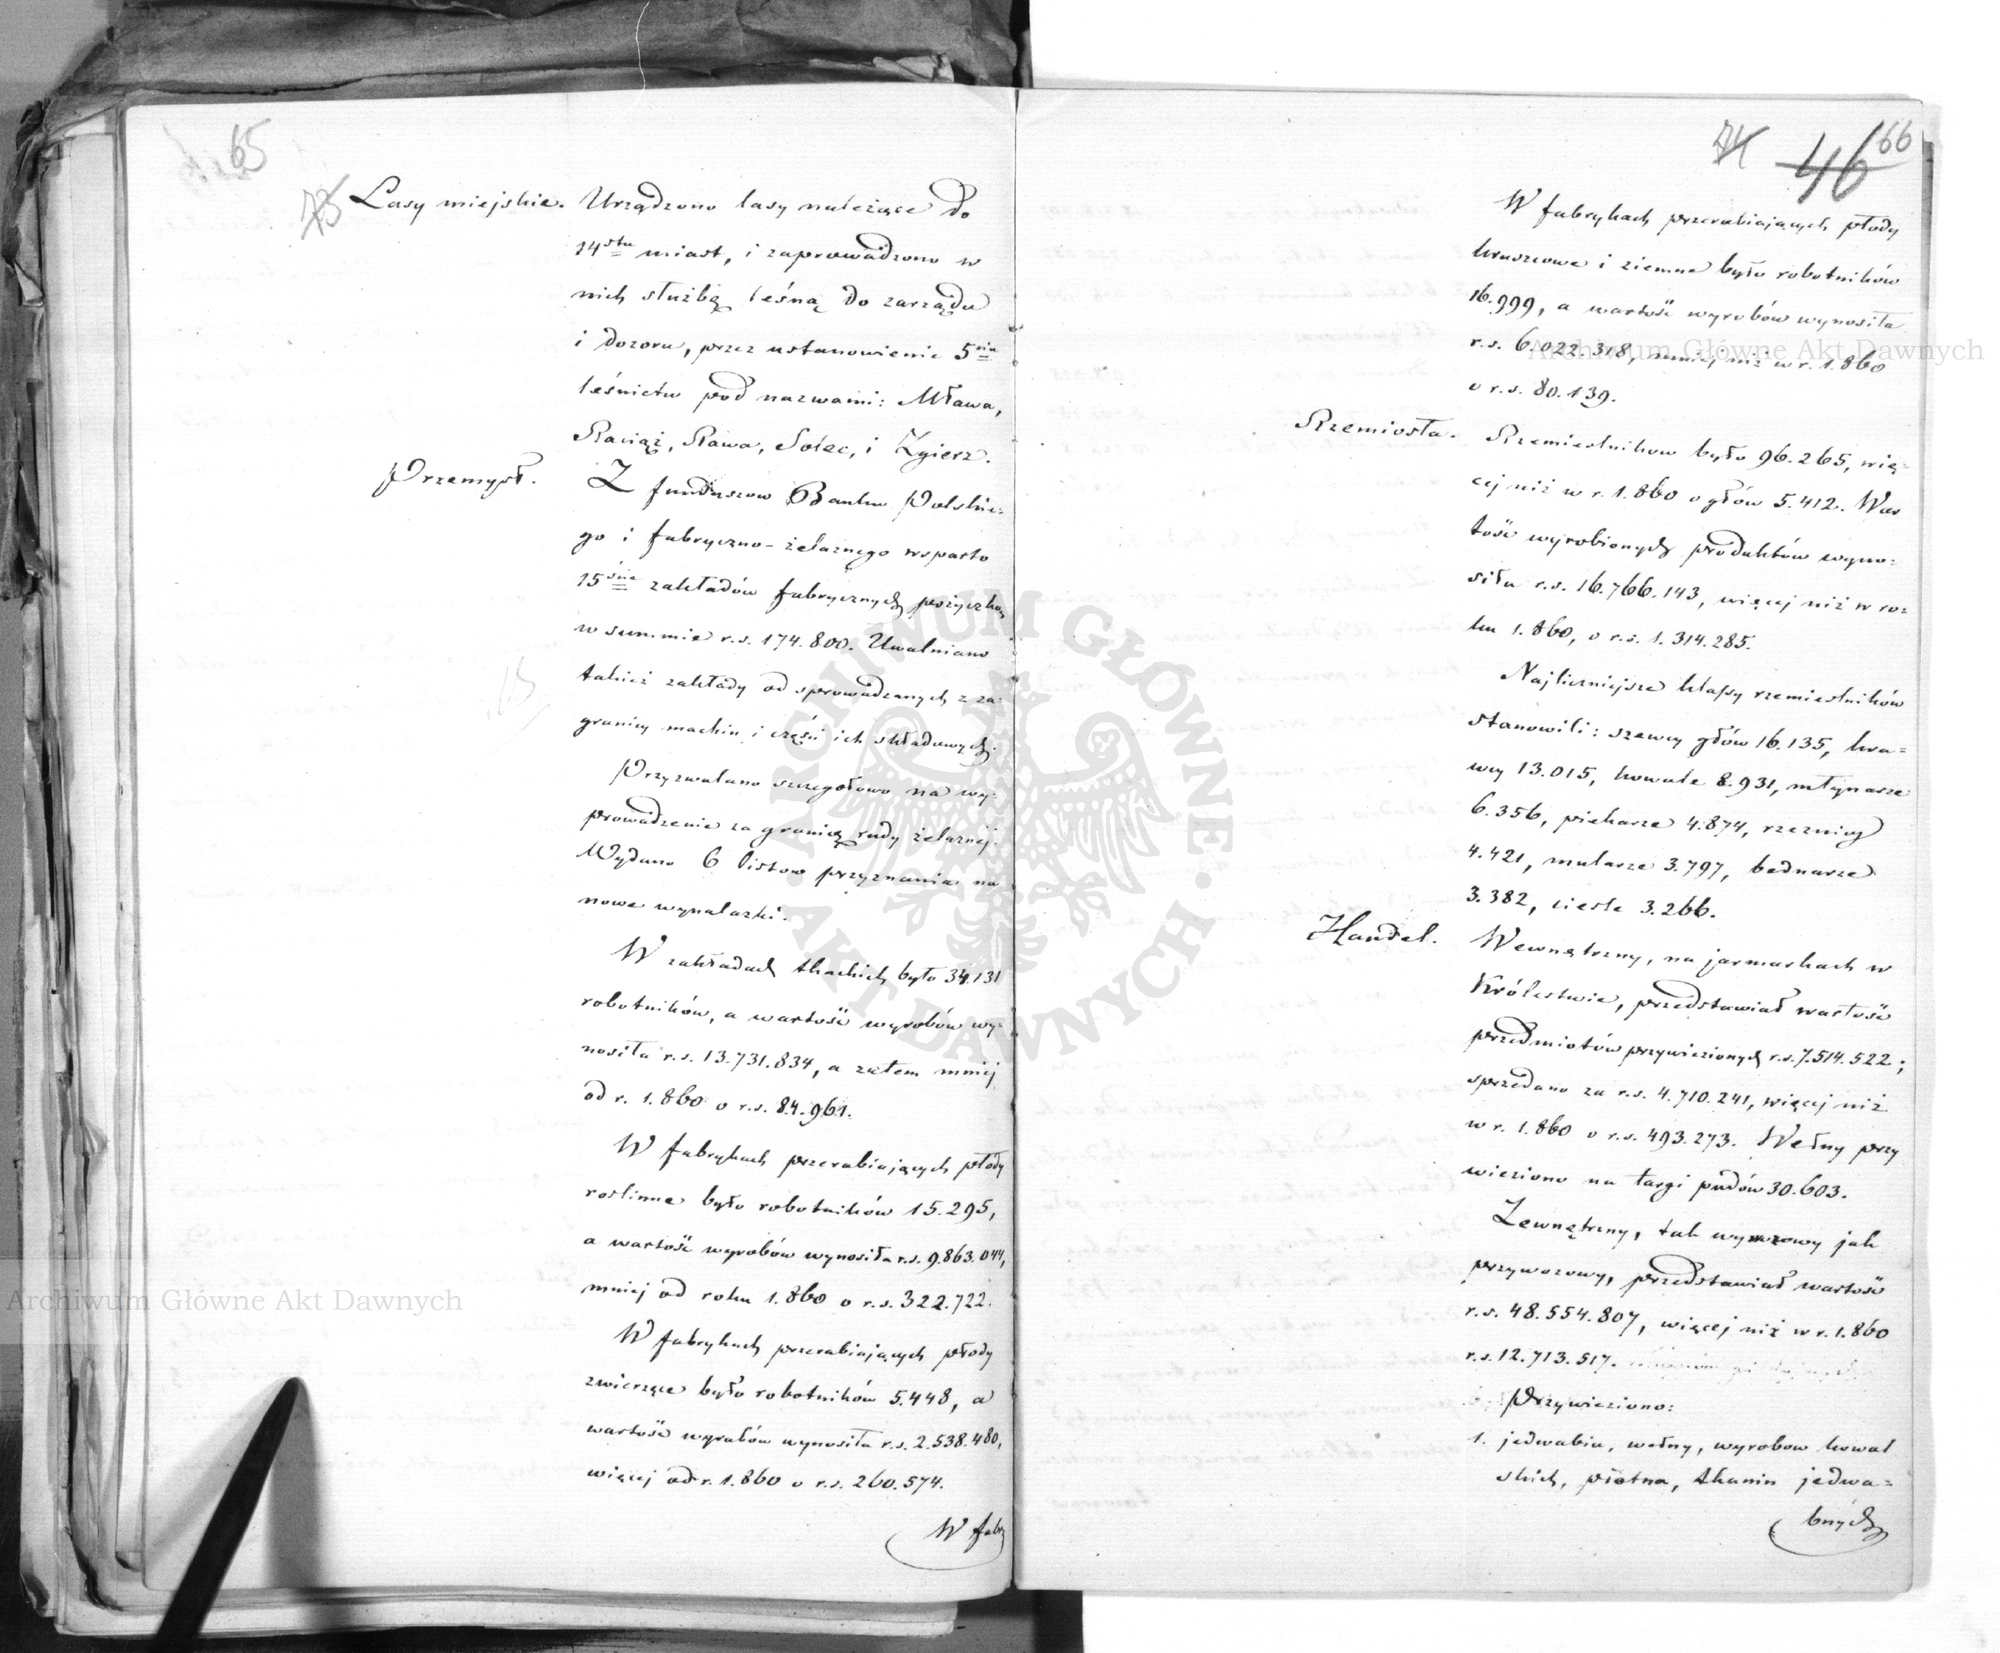 65
73
Lasy miejskie. Urządzono lasy należące do
14stu miast, i zaprowadzono w
nich służbę leśną do zarządu
i dozoru, przez ustanowienie 5ciu
leśnictw pod nazwami: Mława,
Raciąż, Rawa, Solec, i Zgierz.
Przemysł. Z funduszow Banku Polskie-
go i fabryczno-żelaznego wsparto
15ście zakładów fabrycznych pożyczką
w summie r.s. 174.800. Uwalniano
takież zakłady od sprowadzanych z za-
granicy machin i części ich składowych.
Przyzwalano szczegołowo na wy-
prowadzenie za granicę rudy żelaznej.
Wydano 6 listow przyznania na
nowe wynalazki.
W zakładach tkackich było 34.131
robotników, a wartość wyrobów wy-
nosiła r.s. 13.731.834, a zatem mniej
od r. 1.860 o r.s. 84.961.
W fabrykach przerabiających płody
roślinne było robotników 15.295,
a wartość wyrobów wynosiła r.s. 9.863.044,
mniej od roku 1.860 o r.s. 322.722.
W fabrykach przerabiających płody
zwierzęce było robotników 5.448, a
wartość wyrobów wynosiła r.s. 2.538.480,
więcej od r. 1.860 o r.s. 260.574.
W fabr
74 46 66
W fabrykach przerabiających płody
kruszcowe i ziemne było robotników
16.999, a wartość wyrobów wynosiła
r.s. 6.022.318, mniej niż w r. 1.860
o r.s. 80.139.
Rzemiosła. Rzemieslnikow było 96.265, wię-
cej niż w r. 1.860 o głów 5.412. War
tość wyrobionych produktów wyno-
siła r.s. 16.766.143, więcej niż w ro-
ku 1.860, o r.s. 1.314.285.
Najliczniejsze klassy rzemieslników
stanowili: szewcy głów 16.135, kra-
wcy 13.015, kowale 8.931, młynarze
6.356, piekarze 4.874, rzeznicy
4.421, mularze 3.797, bednarze
3.382, cieśle 3.266.
Handel. Wewnętrzny, na jarmarkach w
Królestwie, przedstawiał wartość
przedmiotów przywiezionych r.s. 7.514.522;
sprzedano za r.s. 4.710.241, więcej niż
w r. 1.860 o r.s. 493.273. Wełny przy
wieziono na targi pudów 30.603.
Zewnętrzny, tak wywozowy jak
przywozowy, przedstawiał wartość
r.s. 48.554.807, więcej niż w r. 1.860
r.s. 12.713.517.
Przywieziono:
1. jedwabiu, wełny, wyrobow kowal
skich, płótna, tkanin jedwa-
bnych
Archiwum Główne Akt Dawnych
Archiwum Główne Akt Dawnych
ARCHIWUM GŁÓWNE
AKT DAWNYCH